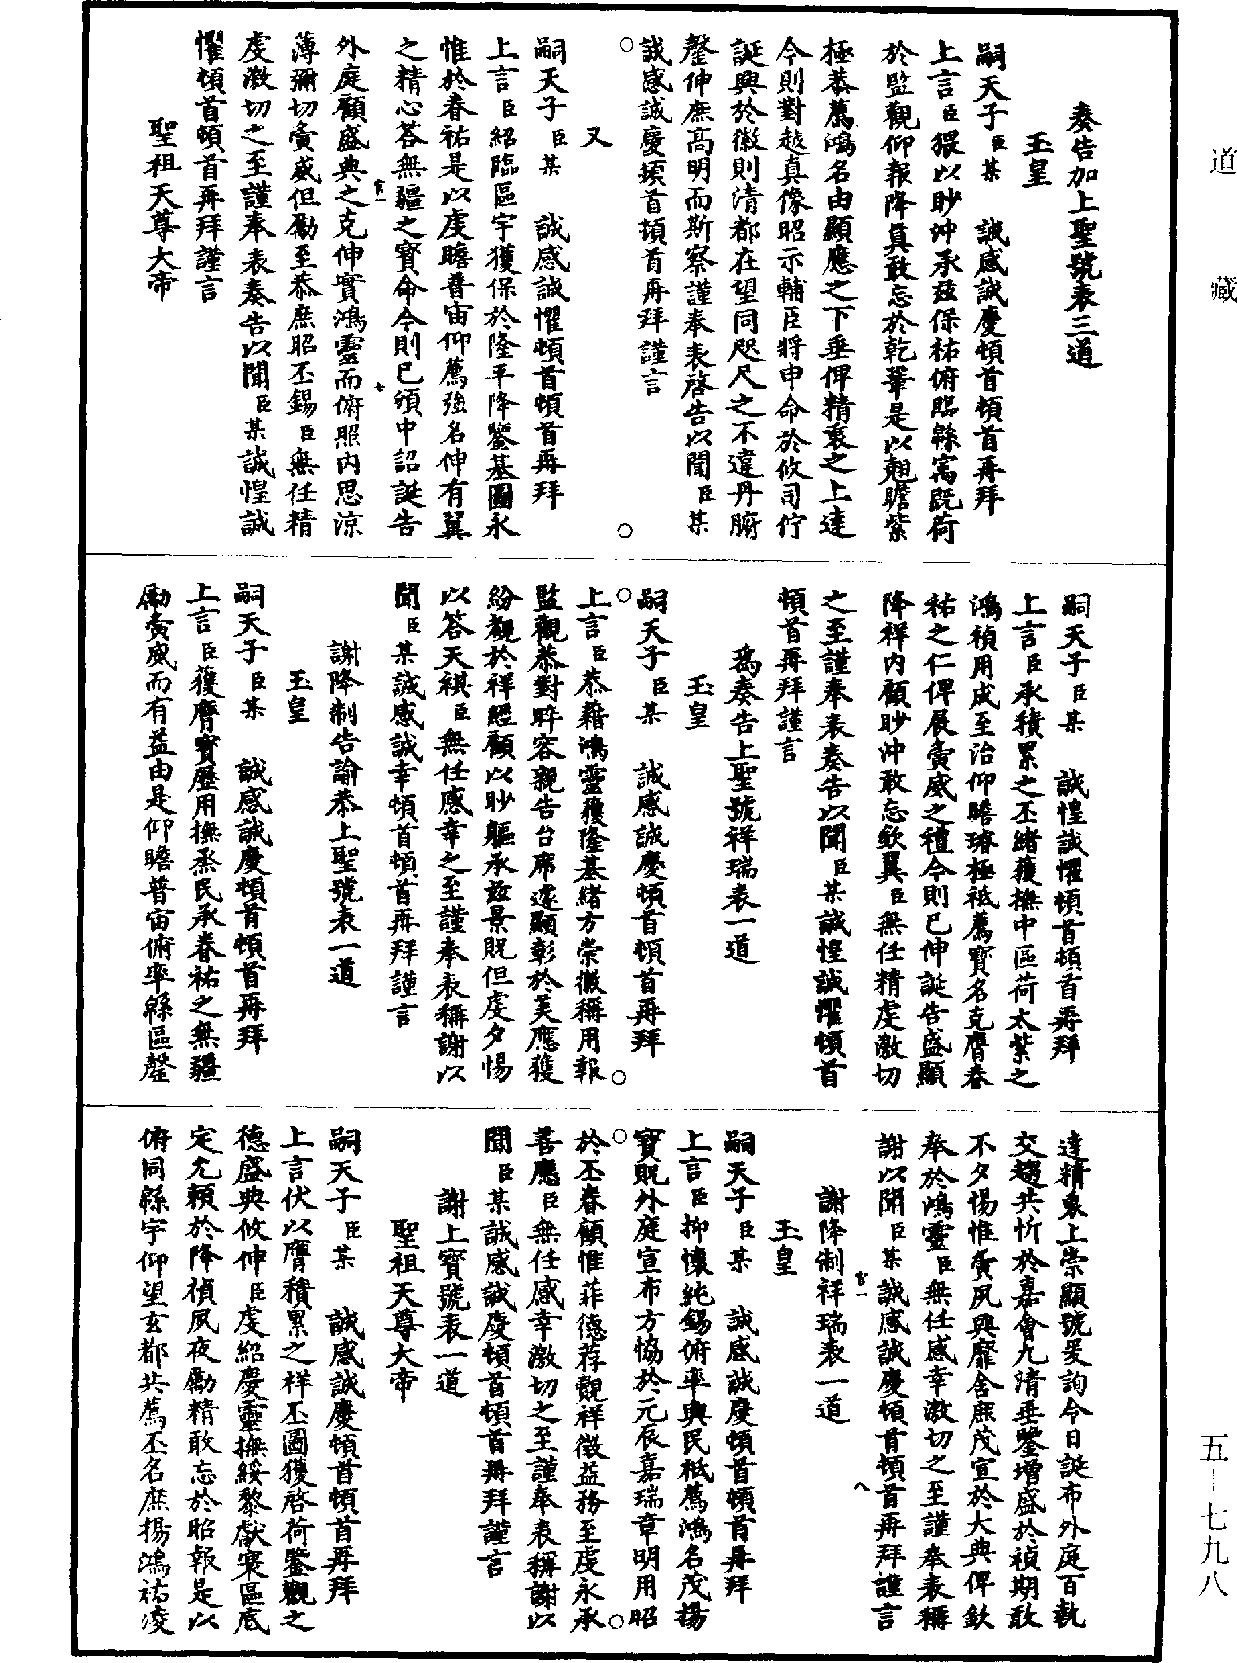 道藏
奏告加上聖號表三道
玉皇
嗣天子臣某　誠感誠慶頓首頓首再拜
上言臣猥以眇沖承茲保祐俯臨緜寓既荷
於監觀仰報降真敢忘於乾鞏是以翹瞻紫
極恭薦鴻名由顯應之下垂俾精衷之上達
今則對越真像昭示輔臣將申命於攸司佇
誕興於徽則清都在望同咫尺之不違丹腑
罄伸庶高明而斯察謹奉表啓告以聞臣某
誠感誠慶頓首頓首再拜謹言
又
嗣天子臣某　誠感誠懼頓首頓首再拜
上言臣紹臨區宇獲保於隆平降鑒基圖永
惟於眷祐是以虔瞻普宙仰薦強名伸有翼
之精心荅無疆之寶命今則已頒中詔誕告
外庭顧盛典之克伸實鴻靈而俯照內思涼
薄彌切夤威但勵至恭庶昭丕錫臣無任精
虔激切之至謹奉表奏告以聞臣某誠惶誠
懼頓首頓首再拜謹言
聖祖天尊大帝
嗣天子臣某　誠惶誠懼頓首頓首再拜
上言臣承積累之丕緒獲撫中區荷太紫之
鴻禎用成至治仰瞻璿極祗薦寶名克膺眷
祐之仁俾展夤威之禮今則已伸誕告盛顯
降祥內顧眇沖敢忘欽翼臣無任精虔激切
之至謹奉表奏告以聞臣某誠惶誠懼頓首
頓首再拜謹言
為奏告上聖號祥瑞表一道
玉皇
嗣天子臣某　誠感誠慶頓首頓首再拜
上言臣恭藉鴻靈獲隆基緒方崇徽稱用報
監觀恭對睟容親告台席遽顯彰於美應獲
紛觀於祥經顧以眇軀承茲景貺但虔夕惕
以答天祺臣無任感幸之至謹奉表稱謝以
聞臣某誠感誠幸頓首頓首再拜謹言
謝降制告諭恭上聖號表一道
玉皇
嗣天子臣某　誠感誠慶頓首頓首再拜
上言臣獲膺寶曆用撫烝民承眷祐之無疆
勵夤威而有益由是仰瞻普宙俯率緜區罄
達精衷上崇顯號爰詢今日誕布外庭百執
交趨共忻於嘉會九清垂鑒增盛於禎期敢
不夕惕惟夤夙興靡舍庶茂宣於大典俾欽
奉於鴻靈臣無任感幸激切之至謹奉表稱
謝以聞臣某誠感誠慶頓首頓首再拜謹言
謝降制祥瑞表一道
玉皇
嗣天子臣某　誠感誠慶頓首頓首再拜
上言臣抑懷純錫俯率輿民祗薦鴻名茂揚
寶貺外庭宣布方協於元辰嘉瑞章明用昭
於丕眷顧惟菲德荐觀祥徵益務至虔永承
善應臣無任感幸激切之至謹奉表稱謝以
聞臣某誠感誠慶頓首頓首再拜謹言
謝上寶號表一道
聖祖天尊大帝
嗣天子臣某　誠感誠慶頓首頓首再拜
上言伏以膺積累之祥丕圖獲啓荷鑒觀之
德盛典攸伸臣虔紹慶靈撫綏黎獻寰區底
定允賴於降禎夙夜勵精敢忘於昭報是以
俯同緜宇仰望玄都共薦丕名庶揚鴻祐淩
五－七九八